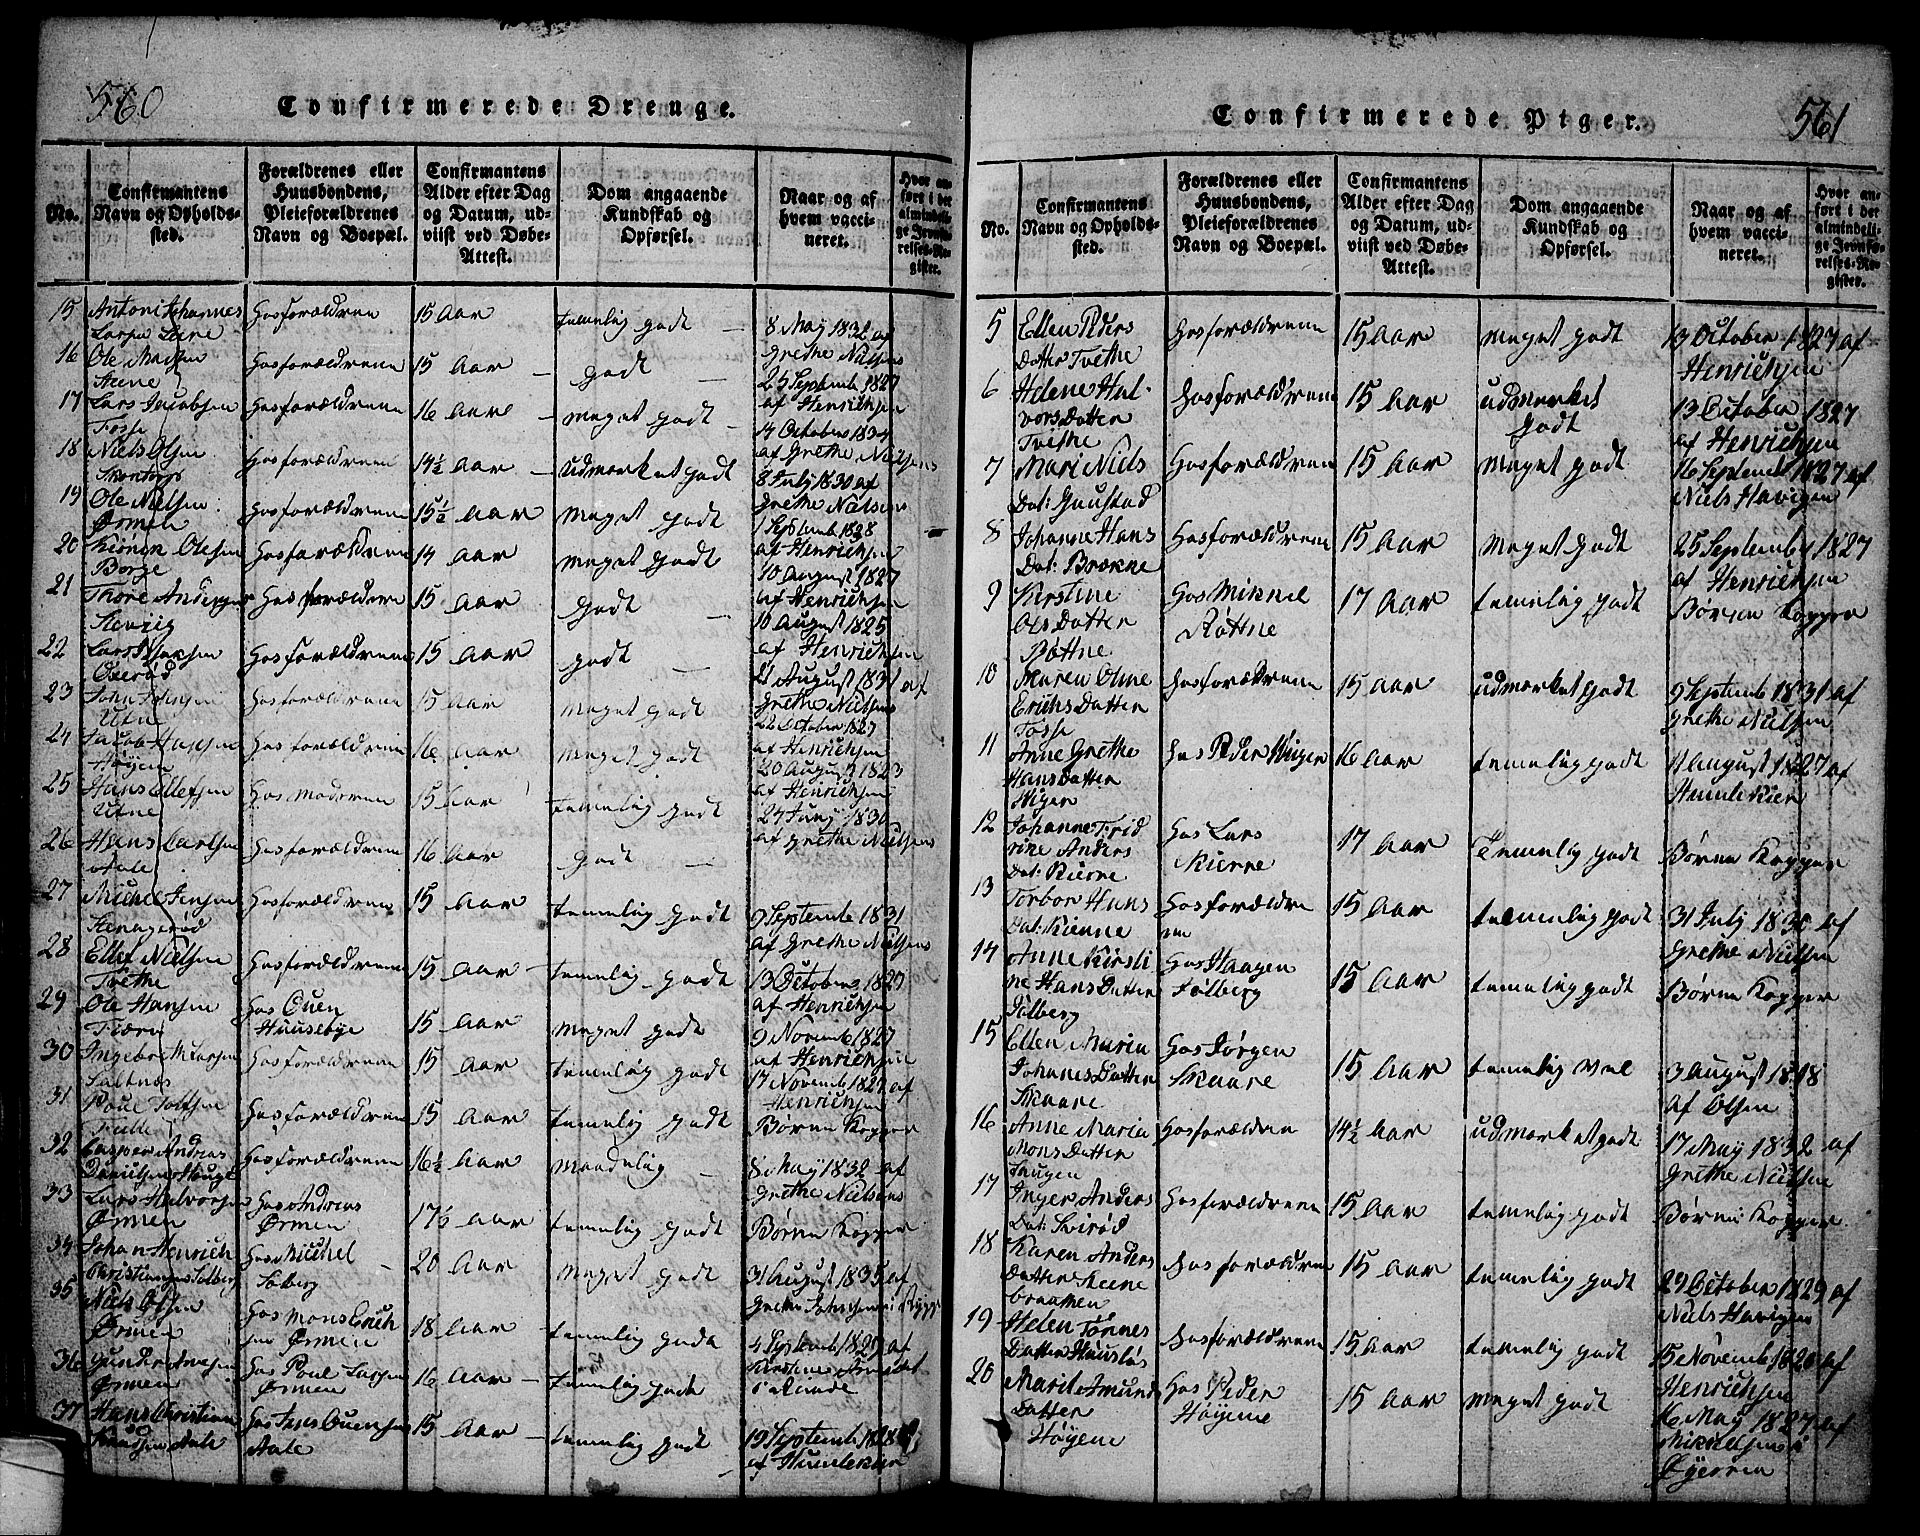 560
Confirmerede Drenge.
No.
Confirmantens Navn og Opholdssted.
Forældrenes eller Huusbondens, Pleieforældrenes Navn og Boepæl.
Confirmantens Alder efter Dag og Datum, udviist ved Døbe-Attest.
Dom angaaende Kundskab og Opførsel.
Naar og af hvem vaccineret.
Hvor anført i det almindelige Jevnførelses-Register.
15 Antoni Johannes Larsen Hos forældrene 15 Aar temelig godt 8 May 1832 af Grethe Nielsens
16 Ole Madsen Steene Hos forældrene 15 Aar godt 25 Septemb 1827 af Henrichsen
17 Lars Jacobsen Fosse Hos forældrene 16 Aar meget godt 14 October 1834 af Grethe Nielsens
18 Niels Olsen Hos forældrene 14½ Aar udmerket godt 8 July 1830 af Grethe Nielsens
19 Ole Nielsen Ørmen Hos forældrene 15½ Aar meget godt 1 Septemb 1828 af Henrichsen
20 Olesen Borge Hos forældrene 14 Aar meget godt 10 August 1827 af Henrichsen
21 Thore Andersen Hos forældrene 15 Aar godt 10 August 1825 af Henrichsen
22 Lars Oxerød Hos forældrene 15 Aar godt 21 August 1831 af Grethe Nielsens
23 John Jensen Utne Hos forældrene 15 Aar meget godt 22 October 1827 af Henrichsen
24 Jacob Hansen Høyem Hos forældrene 16 Aar meget godt 20 August 1823 af Henrichsen
25 Hans Ellefsen Utne Hos moderen 15 Aar temelig godt 24 Juny 1830 af Grethe Nielsens
26 Hans Carlsen Aale Hos forældrene 16 Aar godt
27 Michel Jensen Hos forældrene 15 Aar temelig godt 9 Septemb 1831 af Grethe Nielsens
28 Ellef Nielsen Tvethe Hos forældrene 15 Aar temelig godt 13 October 1827 af Henrichsen
29 Ole Hansen Hos Ouen Huusebye 15 Aar meget godt 9 Novemb 1827 af Henrichsen
30 Ingebr. M. Larsen Saltnæs Hos forældrene 15 Aar temelig godt 17 Novemb 1827 af Henrichsen
31 Poul Hos forældrene 15 Aar temelig godt Børne Kopper
32 Casper Andreas Danielsen Houge Hos forældrene 16½ Aar maadelig 8 May 1832 af Grethe Nielsens
33 Lars Halvorsen Ørmen Hos Andreas Ørmen 17½ Aar temelig godt Børne Kopper
34 Johan Henrich Christiansen Solberg Hos Michel Solberg 20 Aar meget godt 31 August 1835 af Grethe
35 Niels Olsen Ørmen Hos Mons Erichsen Ørmen 18 Aar temelig godt 4 Septemb 1829 af
36 Gunder Ørmen Hos Poul Larsen Ørmen 16 Aar temelig godt
37 Hans Christian Knudsen Aale Hos Jens Ouensen Aale 15 Aar temelig godt 19 Septemb 1828 af Humlekier
561
Confirmerede Piger.
No.
Confirmantens Navn og Opholdssted.
Forældrenes eller Huusbondens, Pleieforældrenes Navn og Boepæl.
Confirmantens Alder efter Dag og Datum, udviist ved Døbe-Attest.
Dom angaaende Kundskab og Opførsel.
Naar og af hvem vaccineret.
Hvor anført i det almindelige Jevnførelses-Register.
5 Ellen Peders Datter Tvethe Hos forældrene 15 Aar meget godt 13 October 1827 af Henrichsen
6 Helene Halvors Datter Tvethe Hos forældrene 15 Aar udmerket godt 13 October 1827 af Henrichsen
7 Mari Niels Dat: Gaustad Hos forældrene 15 Aar meget godt 16 Septemb 1827 af Niels Havigen
8 Johanne Hans Dat: Brekne Hos forældrene 15 Aar meget godt 25 Septemb 1827 af Henrichsen
9 Kirstine Ols Datter Røttne Hos Mikkel Røttne 17 Aar temelig godt Børne Kopper
10 Maren Oline Erichs Datter Fosse Hos forældrene 15 Aar udmerket godt 9 Septemb 1831 af Grethe Nielsen
11 Anne Grethe Hans Datter Wiger Hos Peder Wiger 16 Aar temelig godt 11 August 1827 af Humlekier
12 Johanne Fridrike Anders Dat: Kierne Hos Lars Kierne 17 Aar Temelig godt Børne Kopper
13 Torbor Hans Dat: Kienne Hos forældrene 15 Aar temelig godt 31 July 1830 af Grethe Nielsen
14 Anne Kirstine Hans Datter Solberg Hos Haagen Solberg 15 Aar temelig godt Børne Kopper
15 Ellen Maria Johannes Datter Skaare Hos Jørgen Skaare 15 Aar temelig vel 3 August 1818 af Olsen
16 Anne Maria Mons Datter Haugen Hos forældrene 14½ Aar udmerket godt 17 May 1832 af Grethe Nielsen
17 Inger Anders Dat: Hos forældrene 15 Aar temelig godt Børne Kopper
18 Karen Anders Datter Hos forældrene 15 Aar temelig godt 29 October 1829 af Niels Havigen
19 Helen Tønnes Datter Huusløs Hos forældrene 15 Aar temelig godt 15 Novemb 1820 af Henrichsen
20 Marit Amunds Datter Høyene Hos Peder Høyene 15 Aar meget godt 16 May 1827 af Mikkelsen i